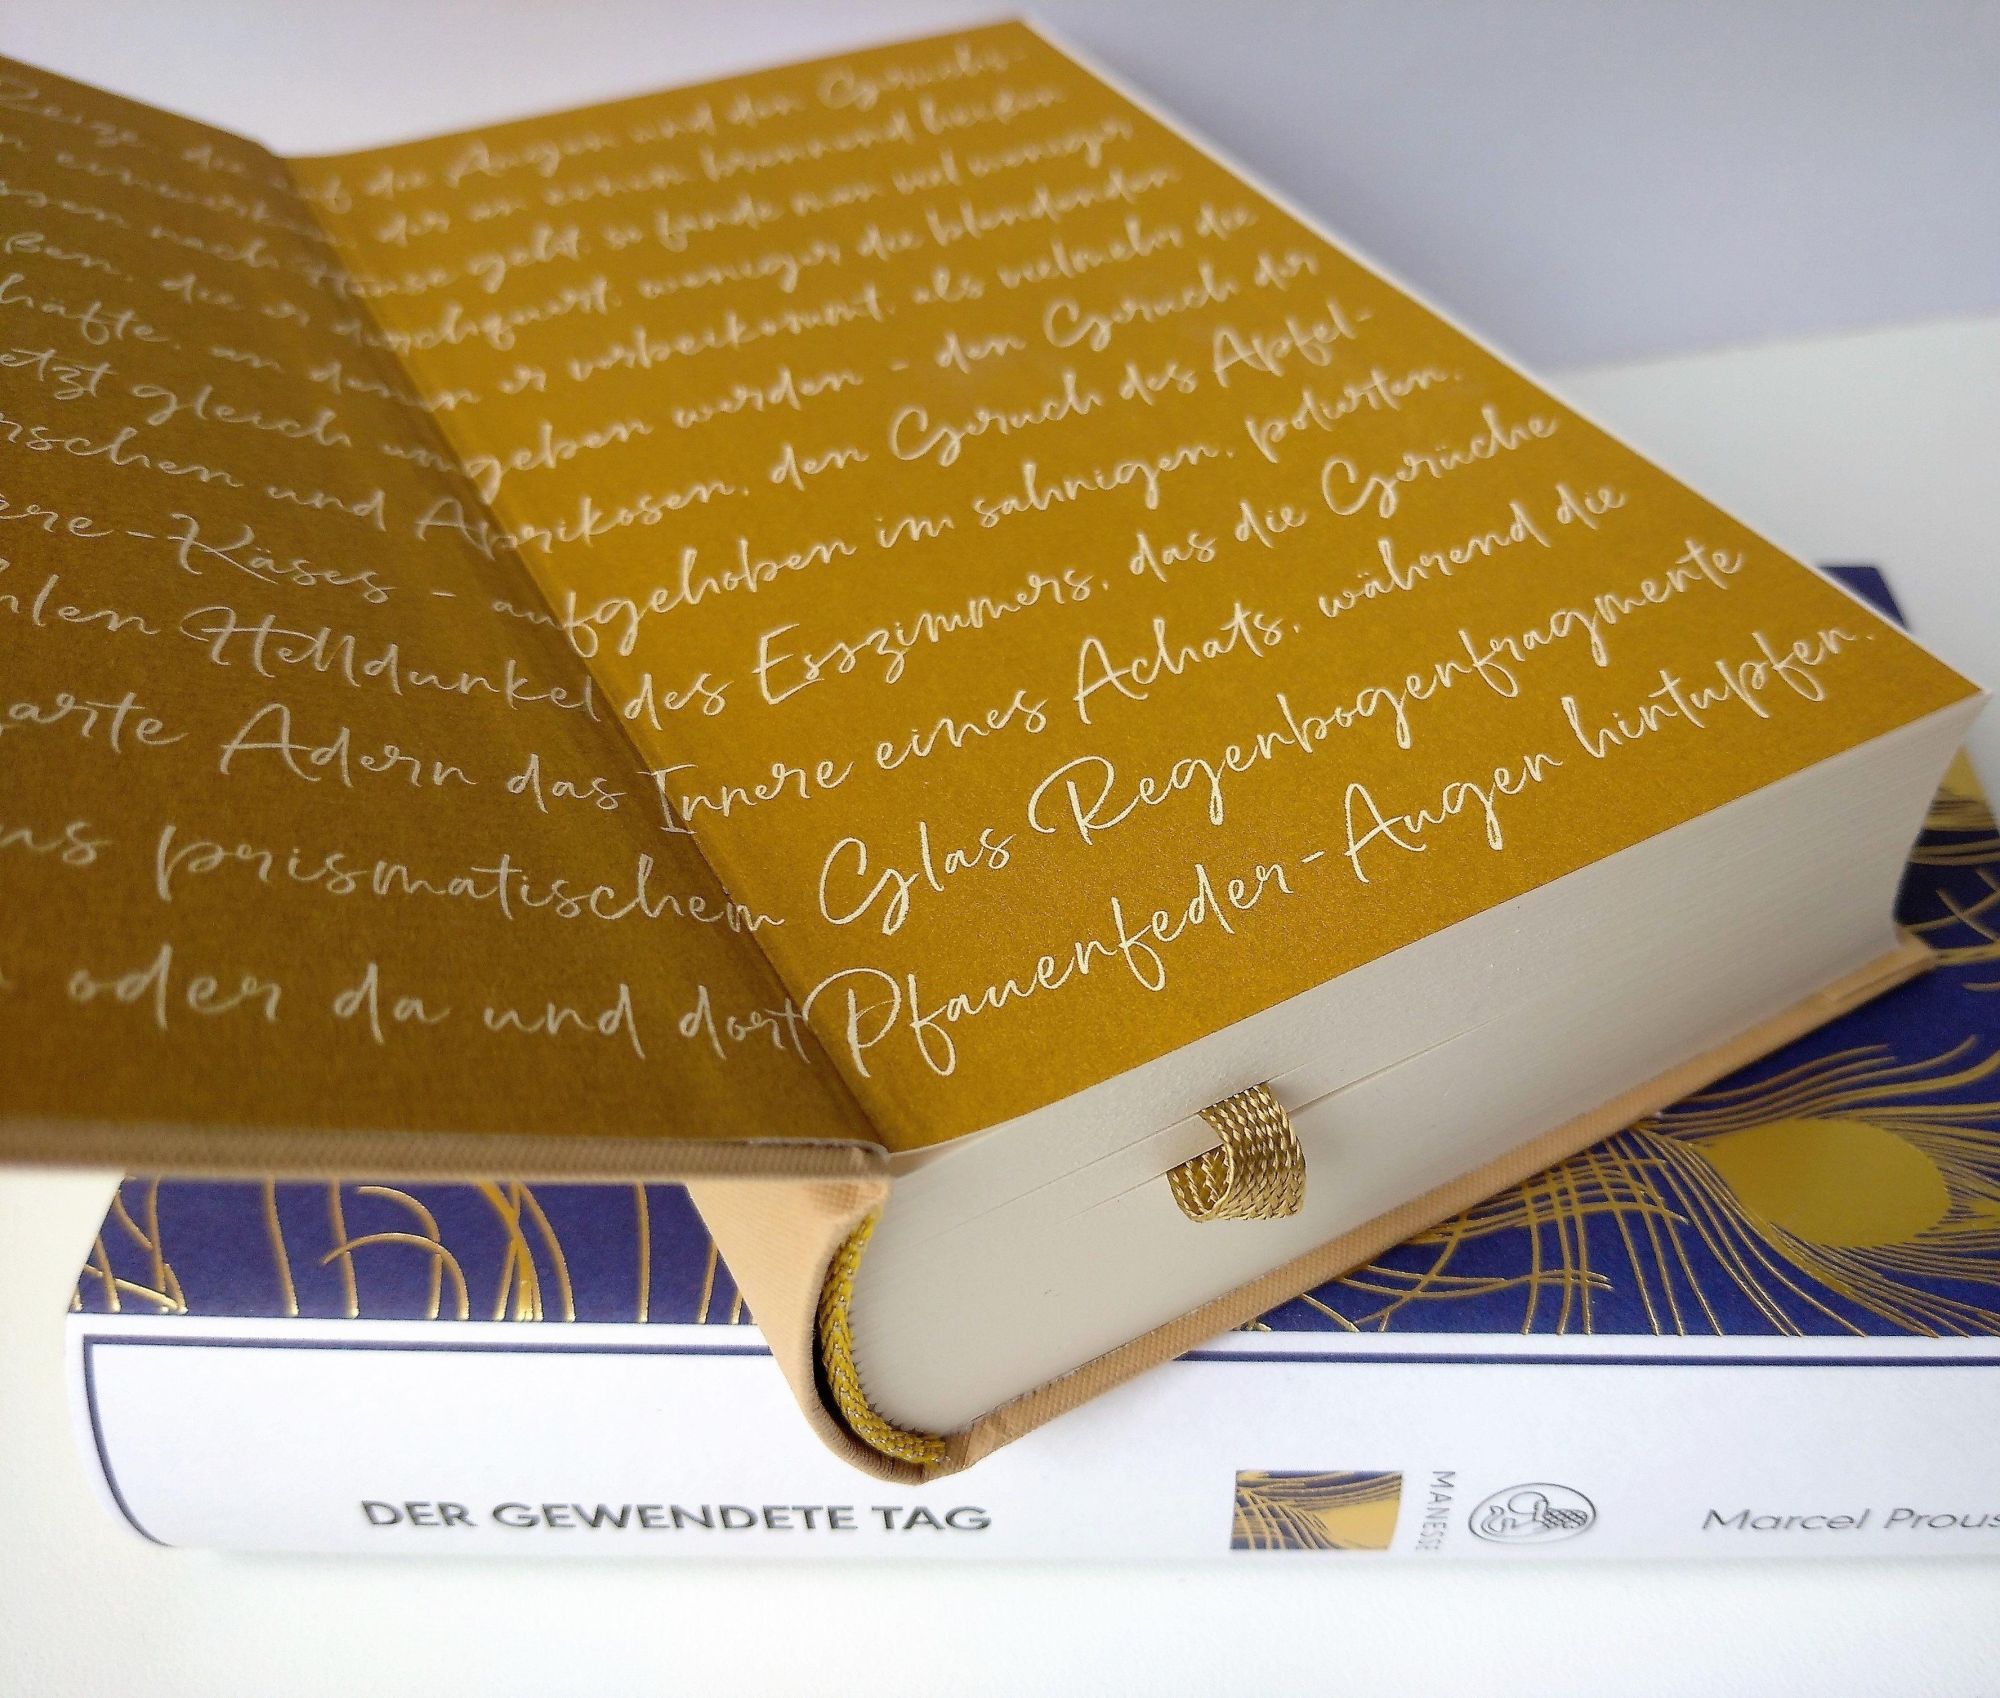 die auf die Augen und den Geruchs-
einwirken, der an einem brennend heißen
nach Hause geht, so fände man viel weniger
die er durchquert, weniger die blendenden
an denen er vorbeikommt, als vielmehr die
gleich umgeben werden – den Geruch der
und Aprikosen, den Geruch des Apfel-
Käses – aufgehoben im sahnigen, polierten,
Helldunkel des Esszimmers, das die Gerüche
Adern das Innere eines Achats, während die
prismatischem Glas Regenbogenfragmente
oder da und dort Pfauenfeder-Augen hintupfen.
DER GEWENDETE TAG
MANESSE
Marcel Prous